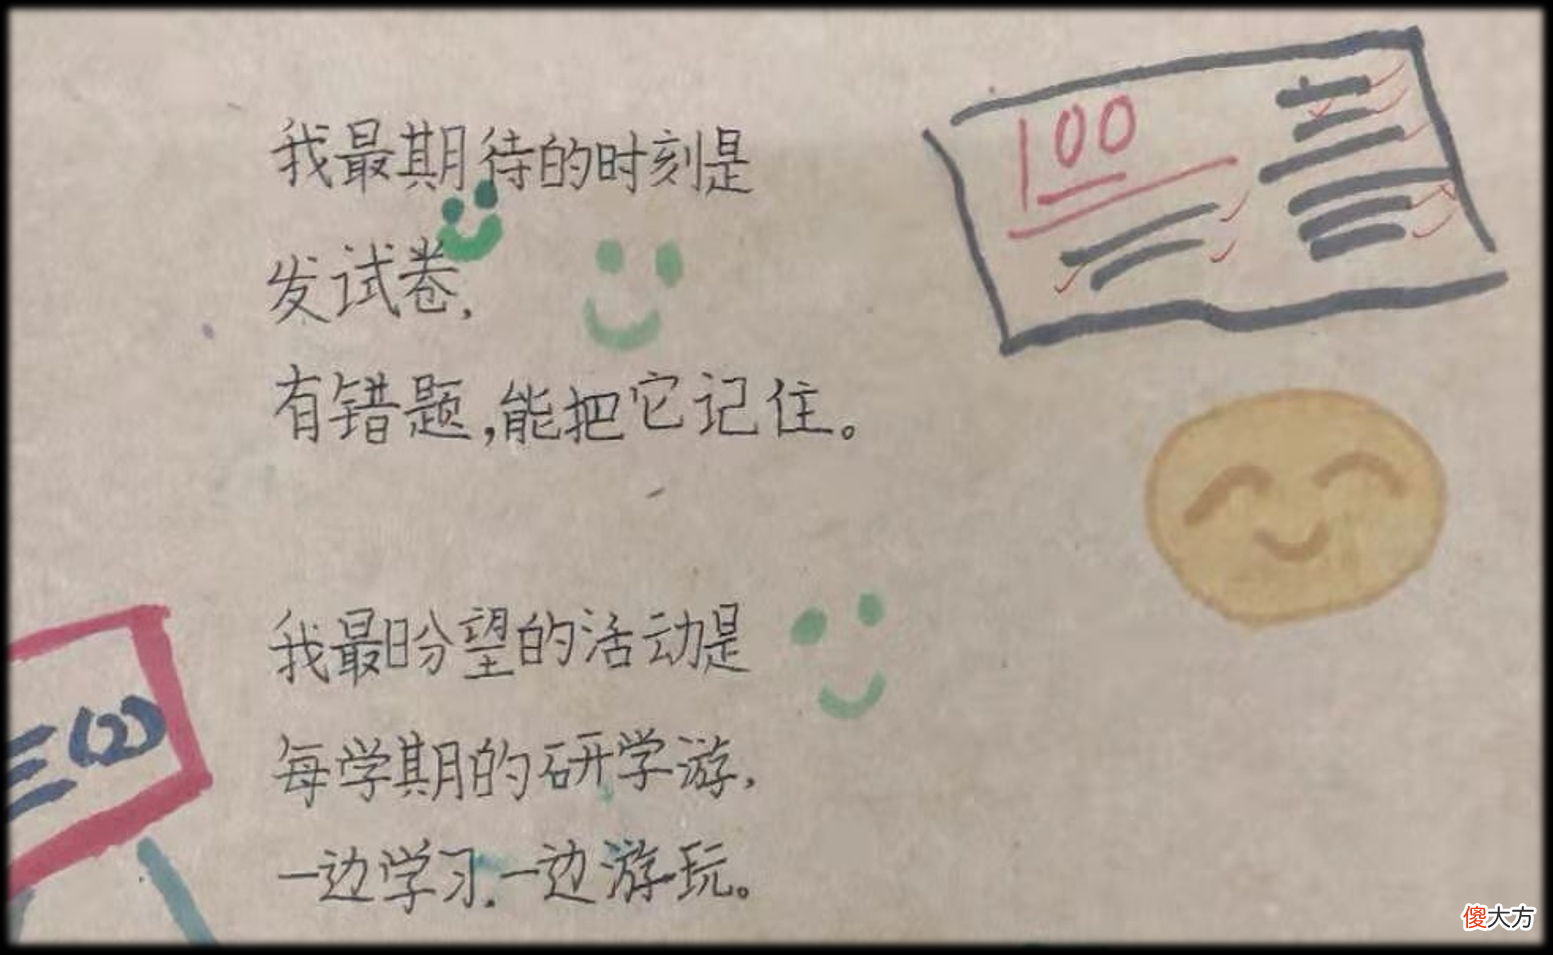 我最期待的时刻是
发试卷,
有错题,能把它记住。
100
我最盼望的活动是
每学期的研学游,
一边学习.一边游玩。
三(2)
傻大方